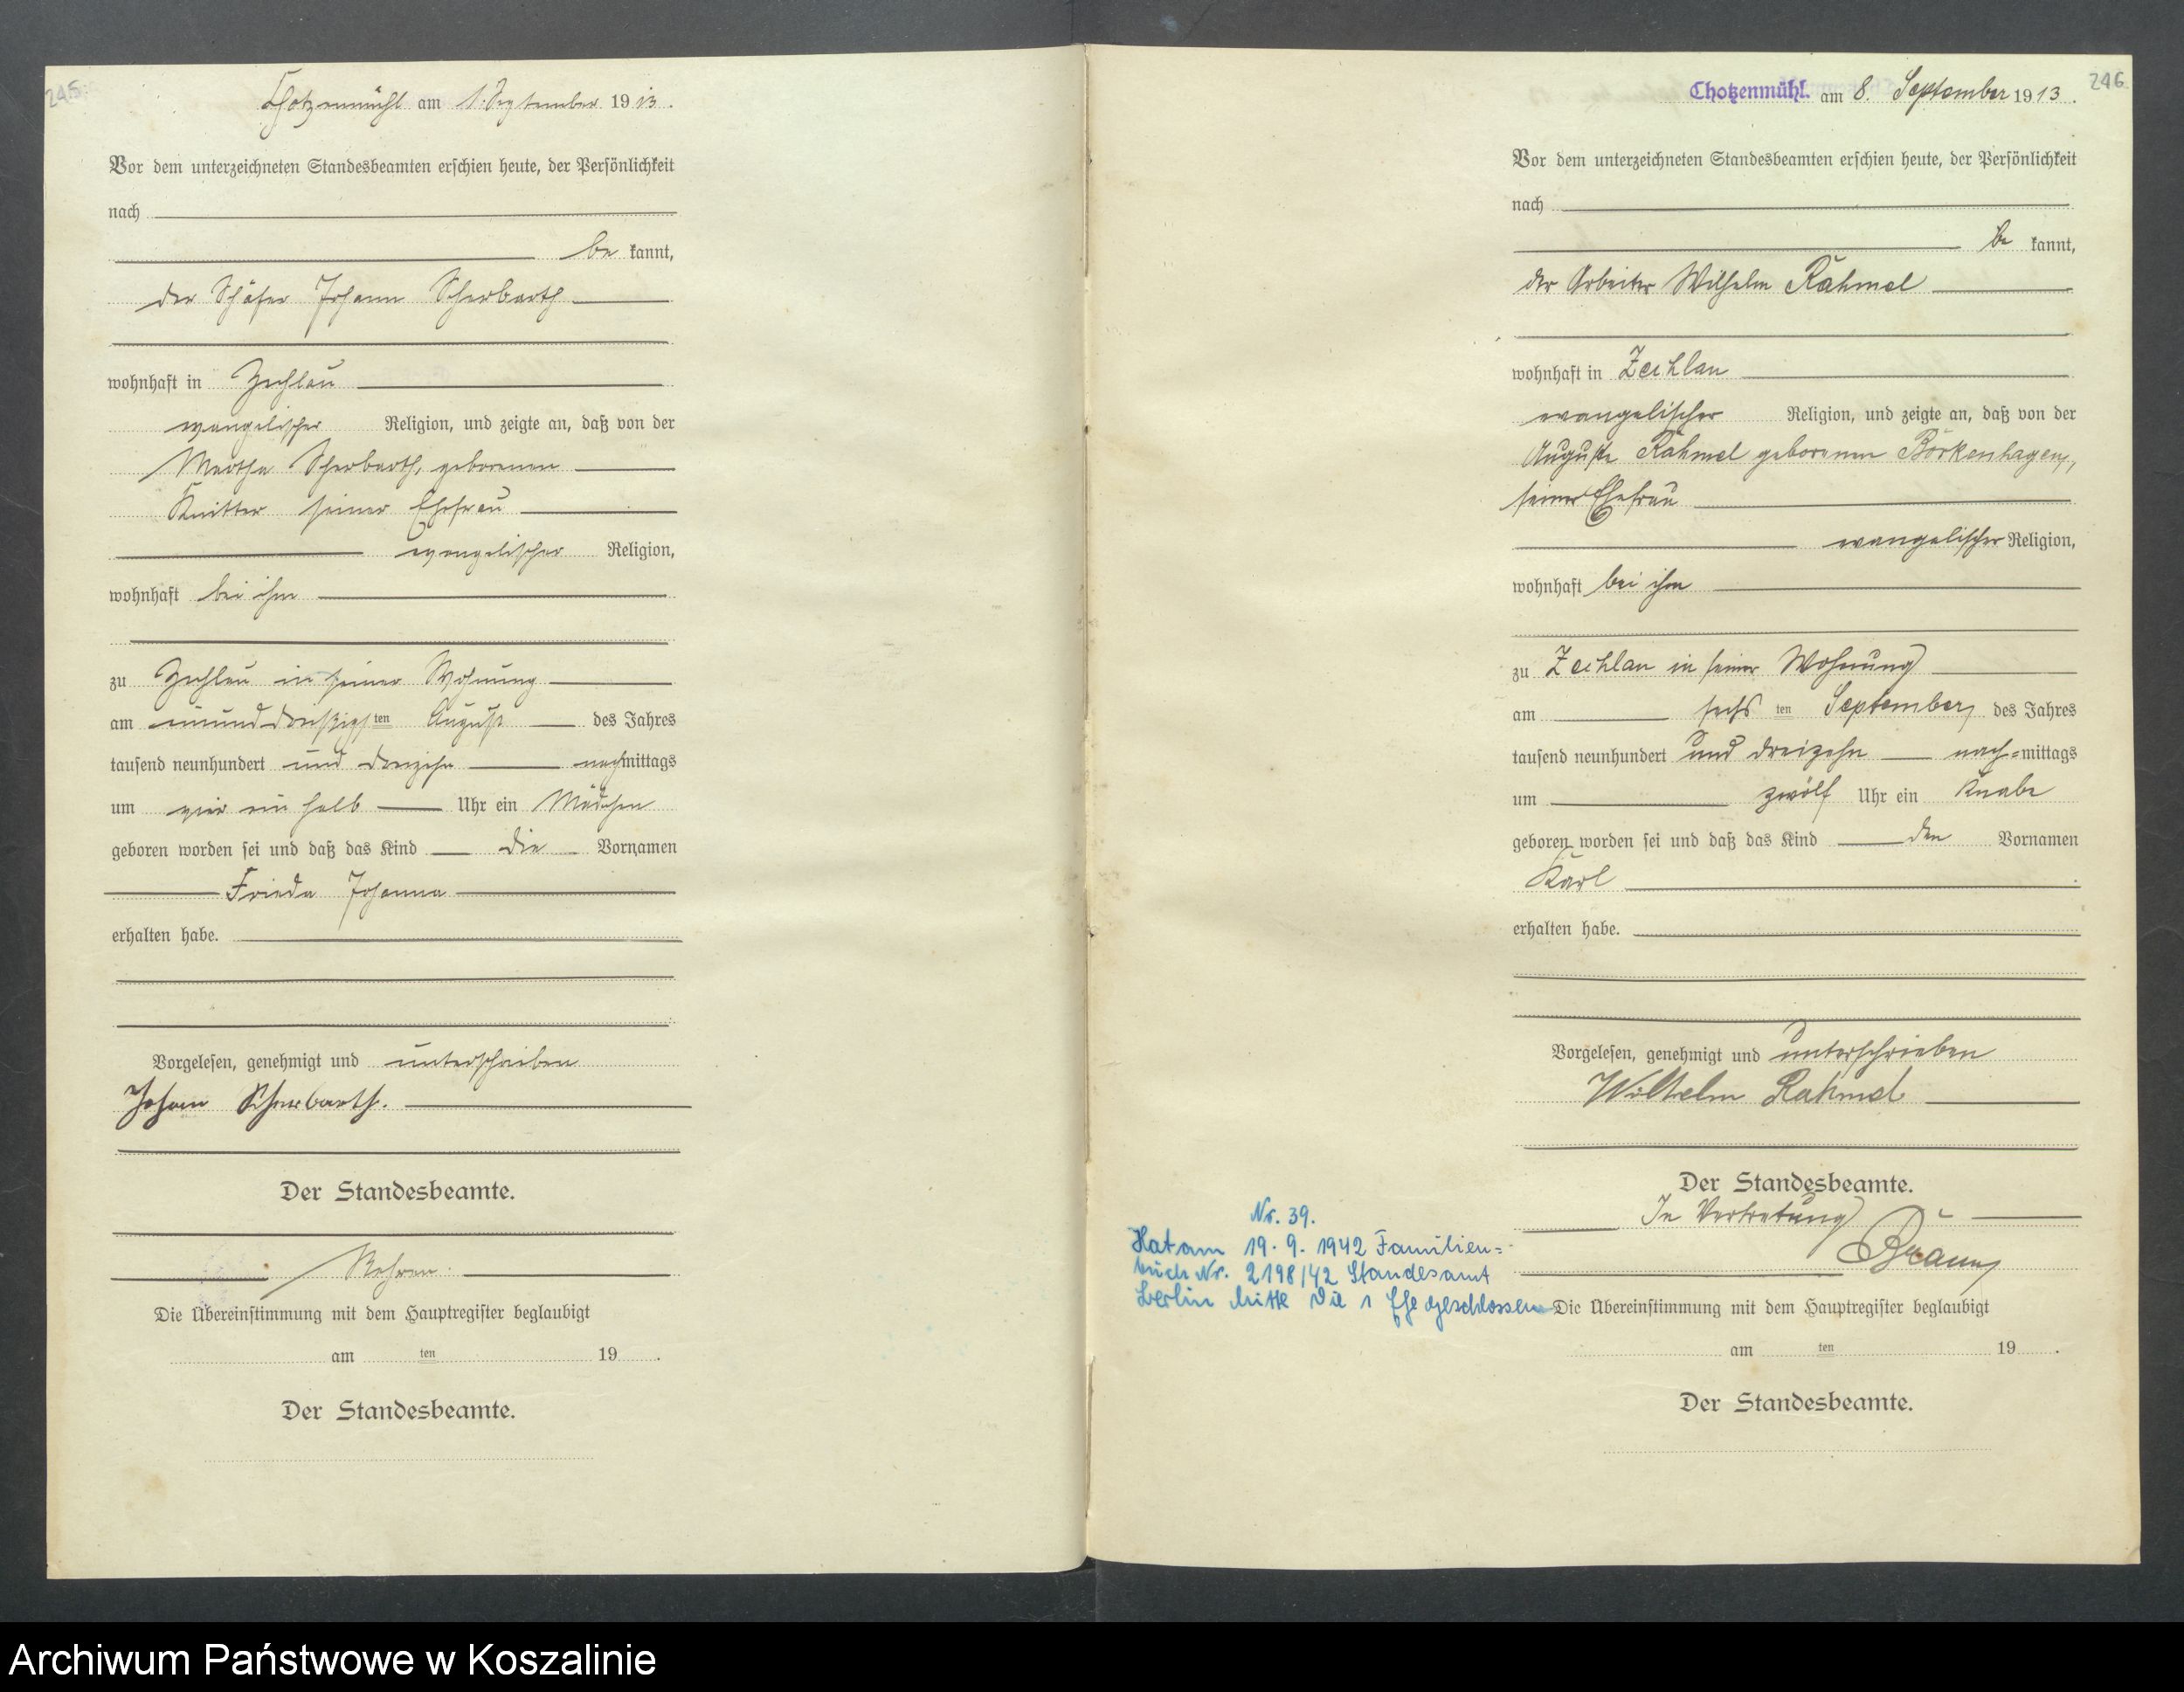 245
Chotzenmühl am 1. September 1913.
Vor dem unterzeichneten Standesbeamten erschien heute, der Persönlichkeit
nach
be kannt,
der Schäfer Johann Scherbarth
wohnhaft in Zechlau
evangelischer Religion, und zeigte an, daß von der
Martha Scherbarth, geborenen
Knitter seiner Ehefrau
evangelischer Religion,
wohnhaft bei ihm
zu Zechlau in seiner Wohnung
am einunddreißigsten August des Jahres
tausend neunhundert und dreizehn nachmittags
um vier ein halb Uhr ein Mädchen
geboren worden sei und daß das Kind die Vornamen
Frieda Johanna
erhalten habe.
Vorgelesen, genehmigt und unterschrieben
Johann Scherbarth.
Der Standesbeamte.
Die Übereinstimmung mit dem Hauptregister beglaubigt
am ten 19 .
Der Standesbeamte.
246
Chotzenmühl. am 8. September 1913.
Vor dem unterzeichneten Standesbeamten erschien heute, der Persönlichkeit
nach
be kannt,
der Arbeiter Wilhelm Rahmel
wohnhaft in Zechlau
evangelischer Religion, und zeigte an, daß von der
Auguste Rahmel geborenen Borkenhagen,
seiner Ehefrau
evangelischer Religion,
wohnhaft bei ihm
zu Zechlau in seiner Wohnung
am sechs ten September des Jahres
tausend neunhundert und dreizehn nach=mittags
um zwölf Uhr ein Knabe
geboren worden sei und daß das Kind den Vornamen
Karl
erhalten habe.
Vorgelesen, genehmigt und unterschrieben
Wilhelm Rahmel
Der Standesbeamte.
In Vertretung
Braun
Nr. 39.
Hat am 19. 9. 1942 Familien=
buch Nr. 2198/42 Standesamt
Berlin Mitte die 1 Ehe geschlossen
Die Übereinstimmung mit dem Hauptregister beglaubigt
am ten 19 .
Der Standesbeamte.
Archiwum Państwowe w Koszalinie